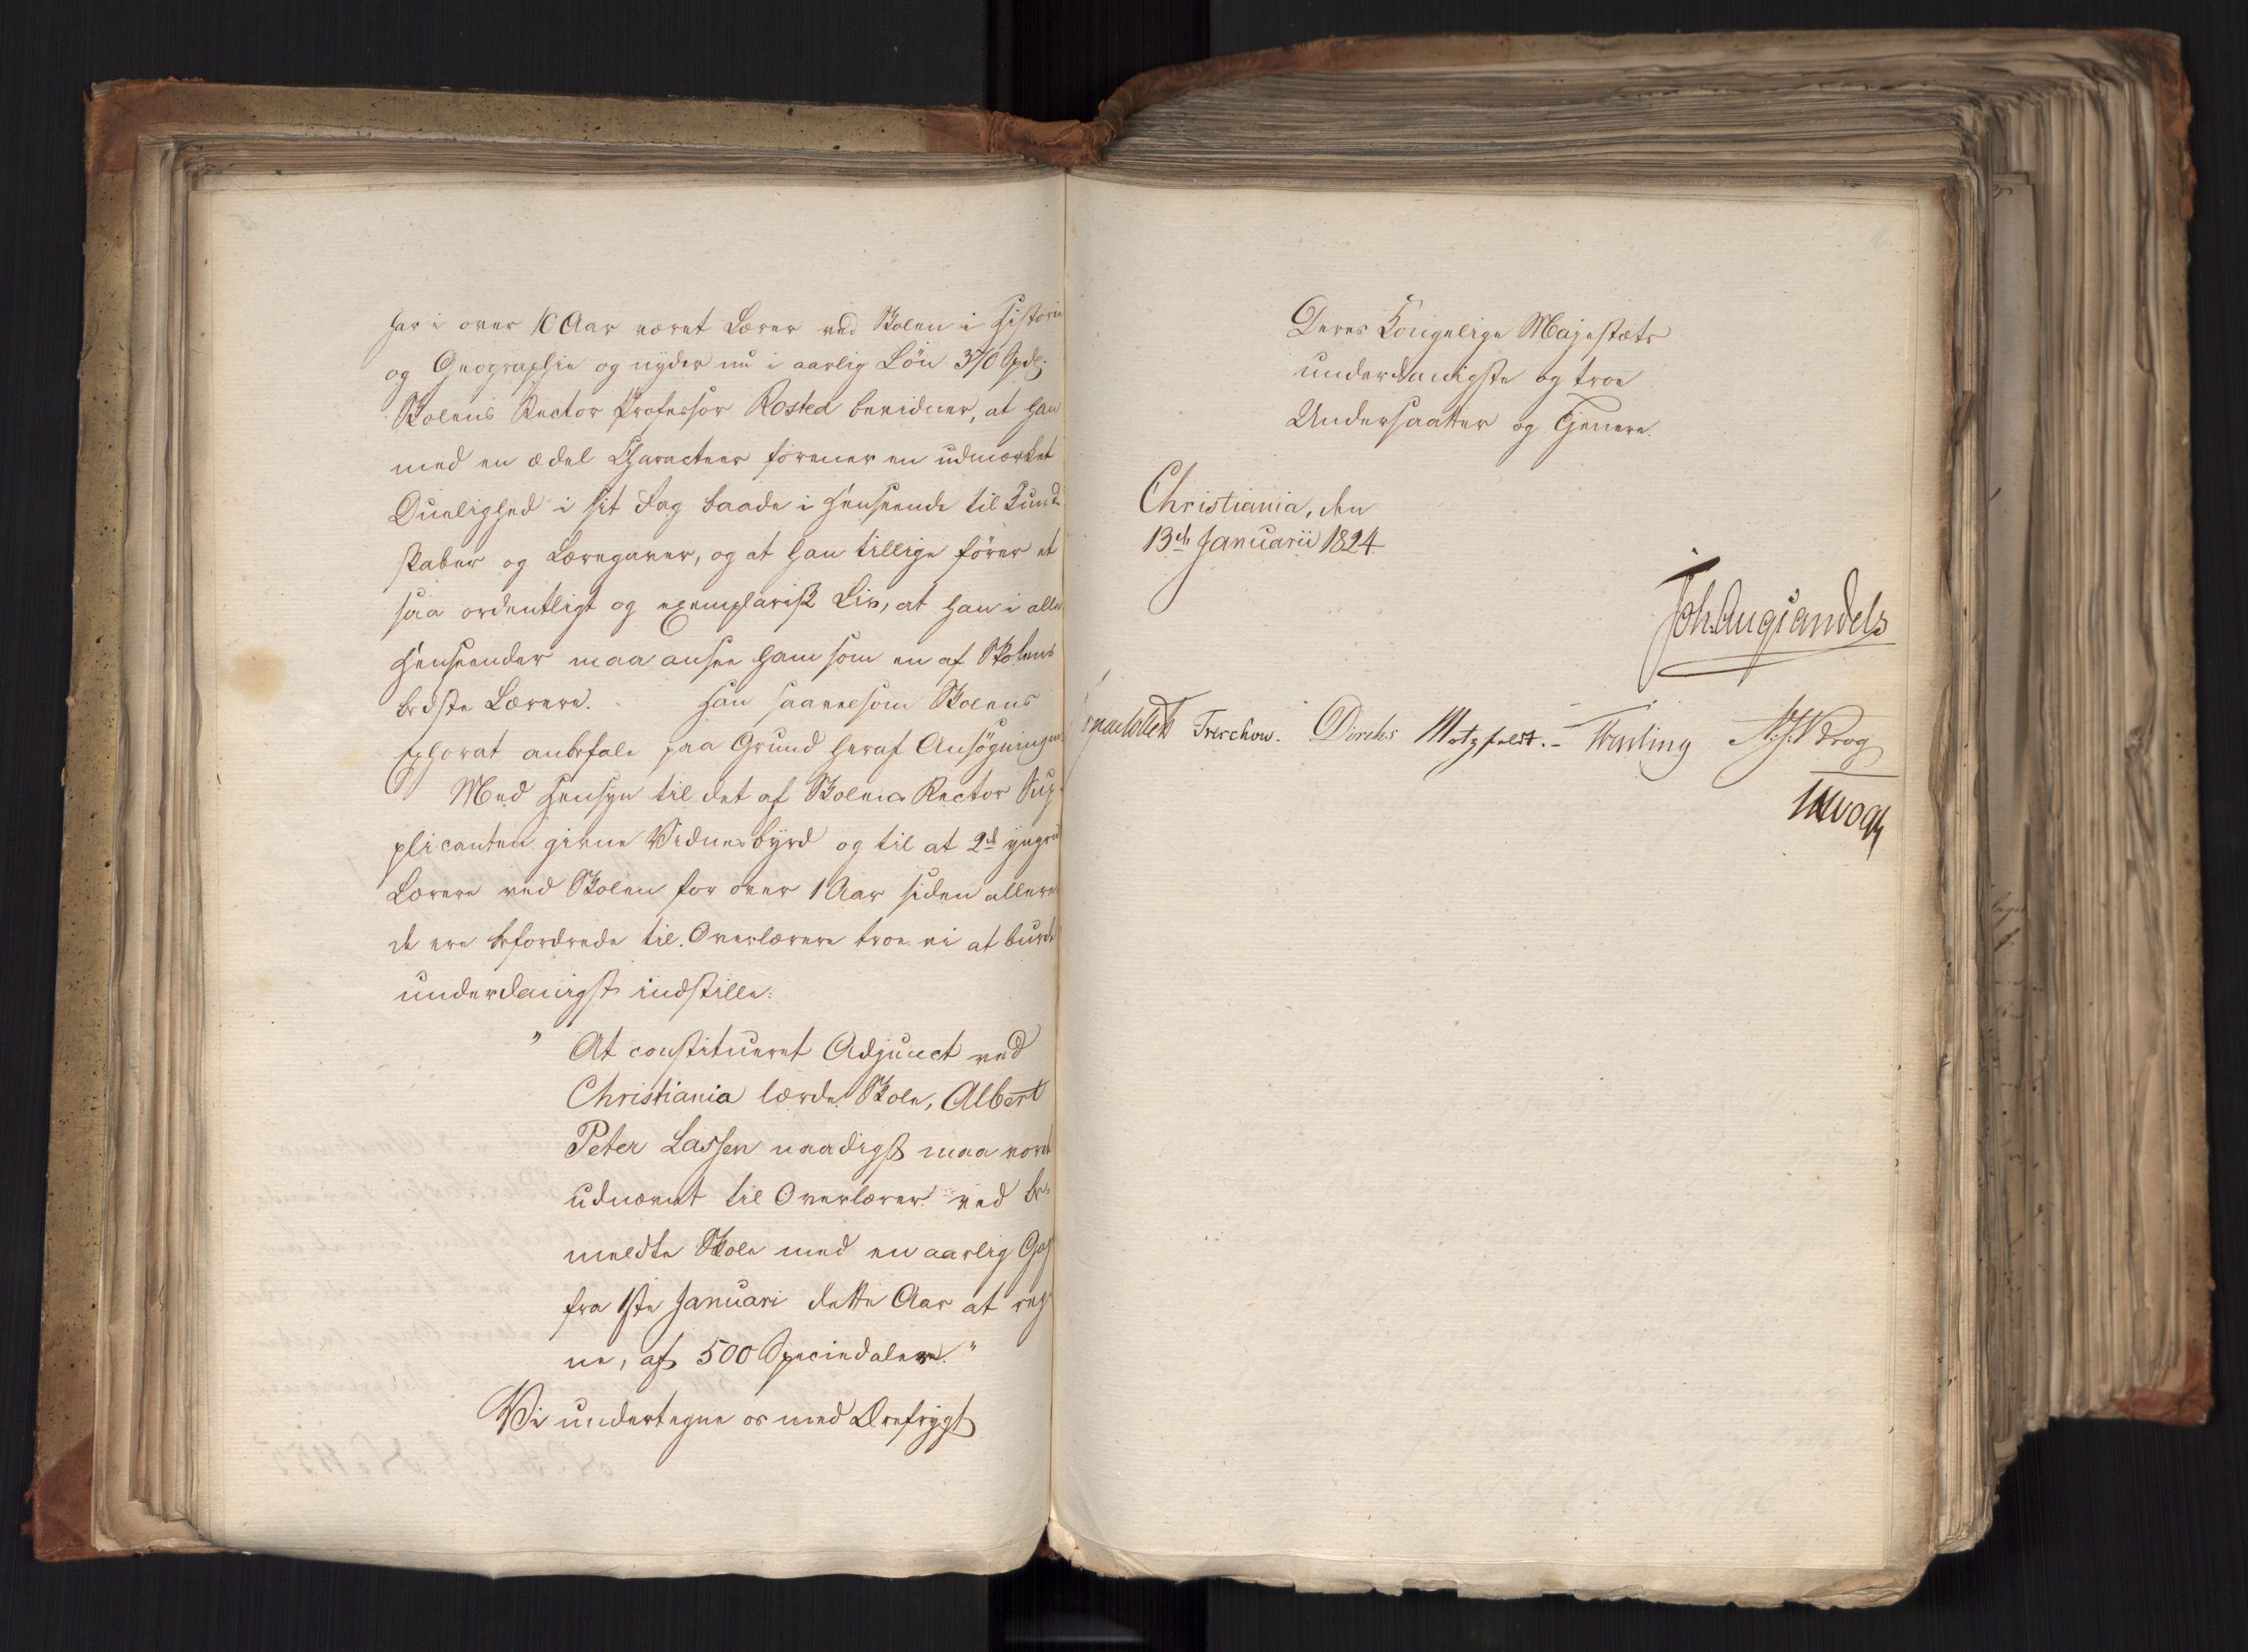 har i over 10 Aar været Lærer ved Skolen i Historie
og Geographie og nyder nu i aarlig Løn 370 Spdlr.
Skolens Rector Professor Rosted bevidner, at han
med en ædel Characteer forener en udmærket
Duelighed i sit Fag baade i Henseende til Kund-
skaber og Læregaver, og at han tillige fører et
saa ordentligt og exemplarisk Liv, at han i alle
Henseender maa ansee ham som en af Skolens
bedste Lærere. Han saavelsom Skolens
Ephorat anbefale paa Grund heraf Ansøgningen
Med Hensyn til det af Skolens Rector Sup-
plicanten givne Vidnesbyrd og til at 2de yngre
Lærere ved Skolen for over 1 Aar siden allere-
de ere befordrede til Overlærere troe vi at burde
underdanigst indstille:
" At constitueret Adjunct ved
Christiania lærde Skole, Albert
Peter Lassen naadigst maa vorde
udnævnt til Overlærer ved be-
meldte Skole med en aarlig Gag
fra 1ste Januari dette Aar at reg
ne, af 500 Speciedaler."
Vi undertegne os med Ærefrygt
Deres Kongelige Majestæts
underdanigste og troe
Undersaatter og Tjenere.
Christiania, den
13de Januarii 1824
Joh. Aug. Sandels
Treschow. Diriks Motzfeldt. - Fasting A. J. Krog
Vogt